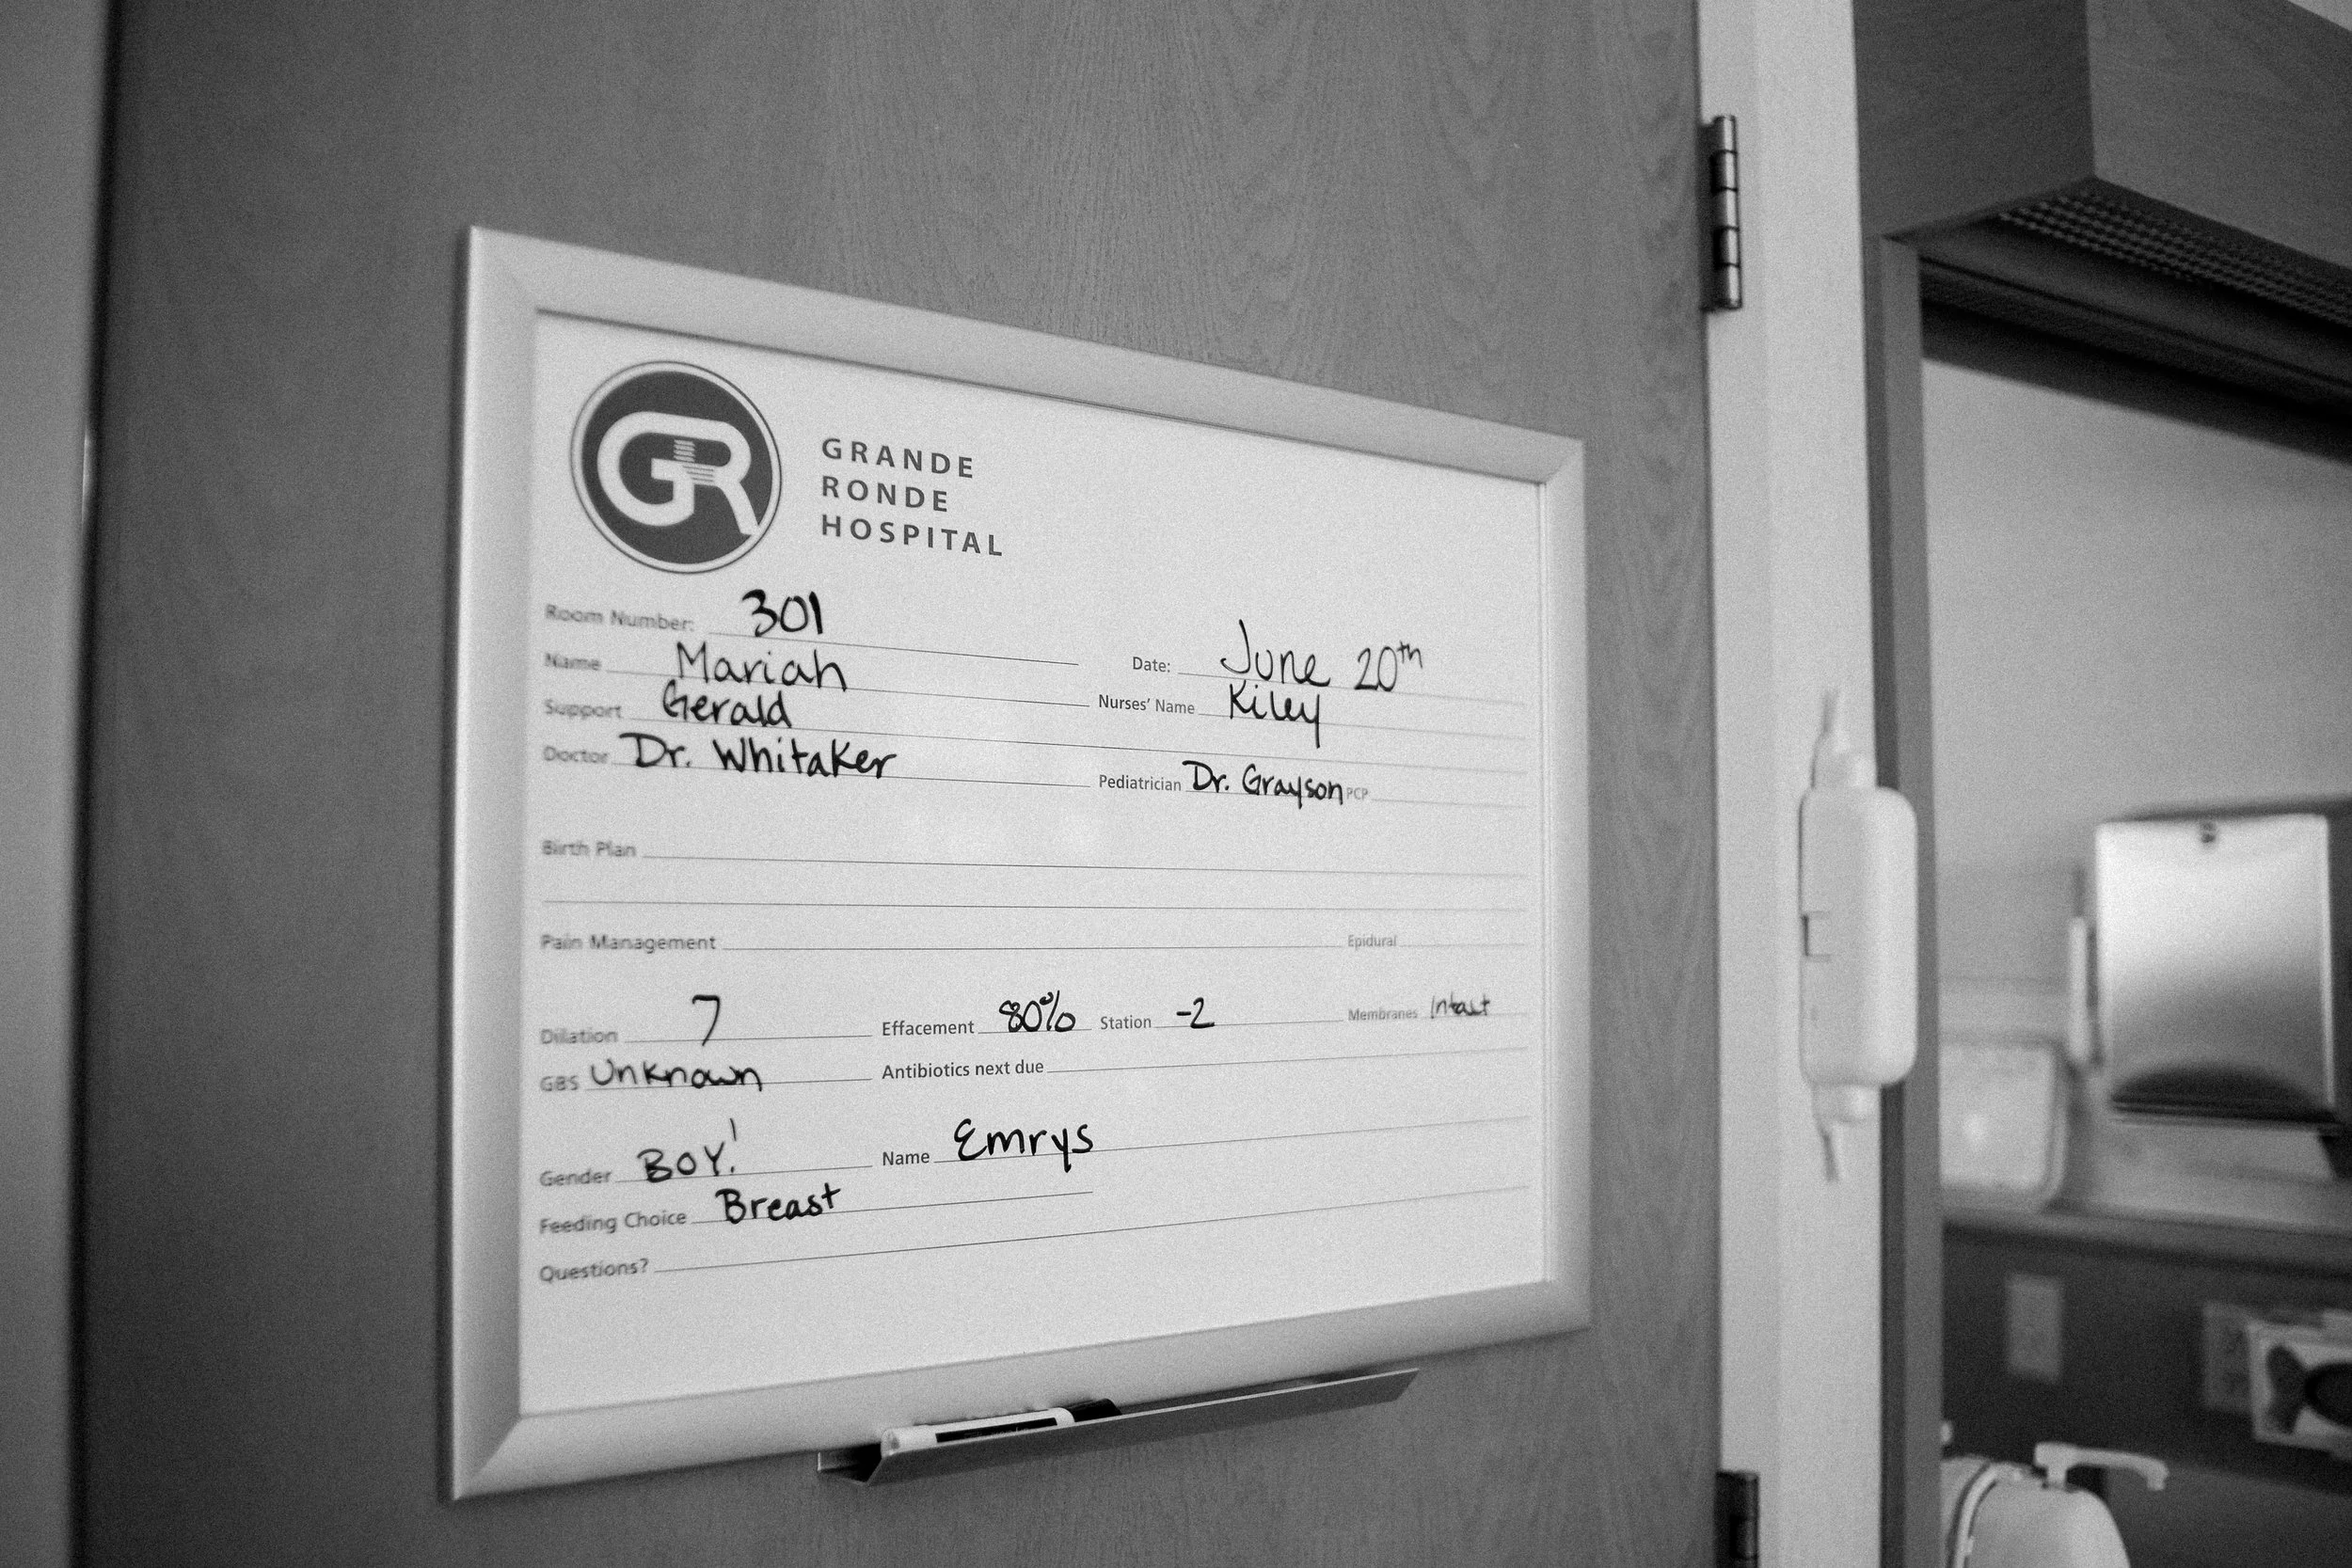 GR
GRANDE
RONDE
HOSPITAL
Room Number: 301
Date: June 20th
Name Mariah
Nurses' Name Kiley
Support Gerald
Doctor Dr. Whitaker
Pediatrician Dr. Grayson PCP
Birth Plan
Pain Management Epidural
Dilation 7 Effacement 80% Station -2 Membranes Intact
GBS Unknown Antibiotics next due
Gender BOY! Name Emrys
Feeding Choice Breast
Questions?